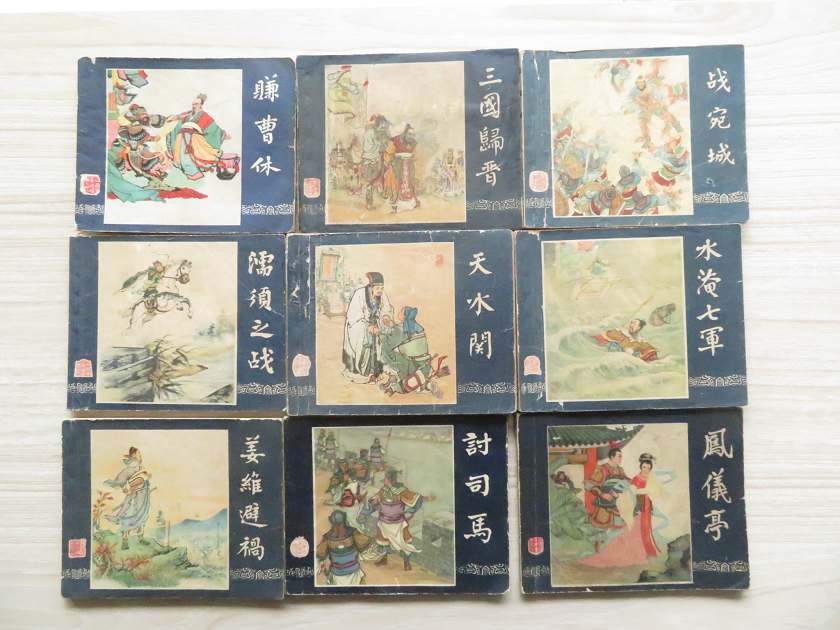 賺曹休
三國歸晋
战宛城
濡須之战
天水関
水淹七軍
姜維避禍
討司馬
鳳儀亭